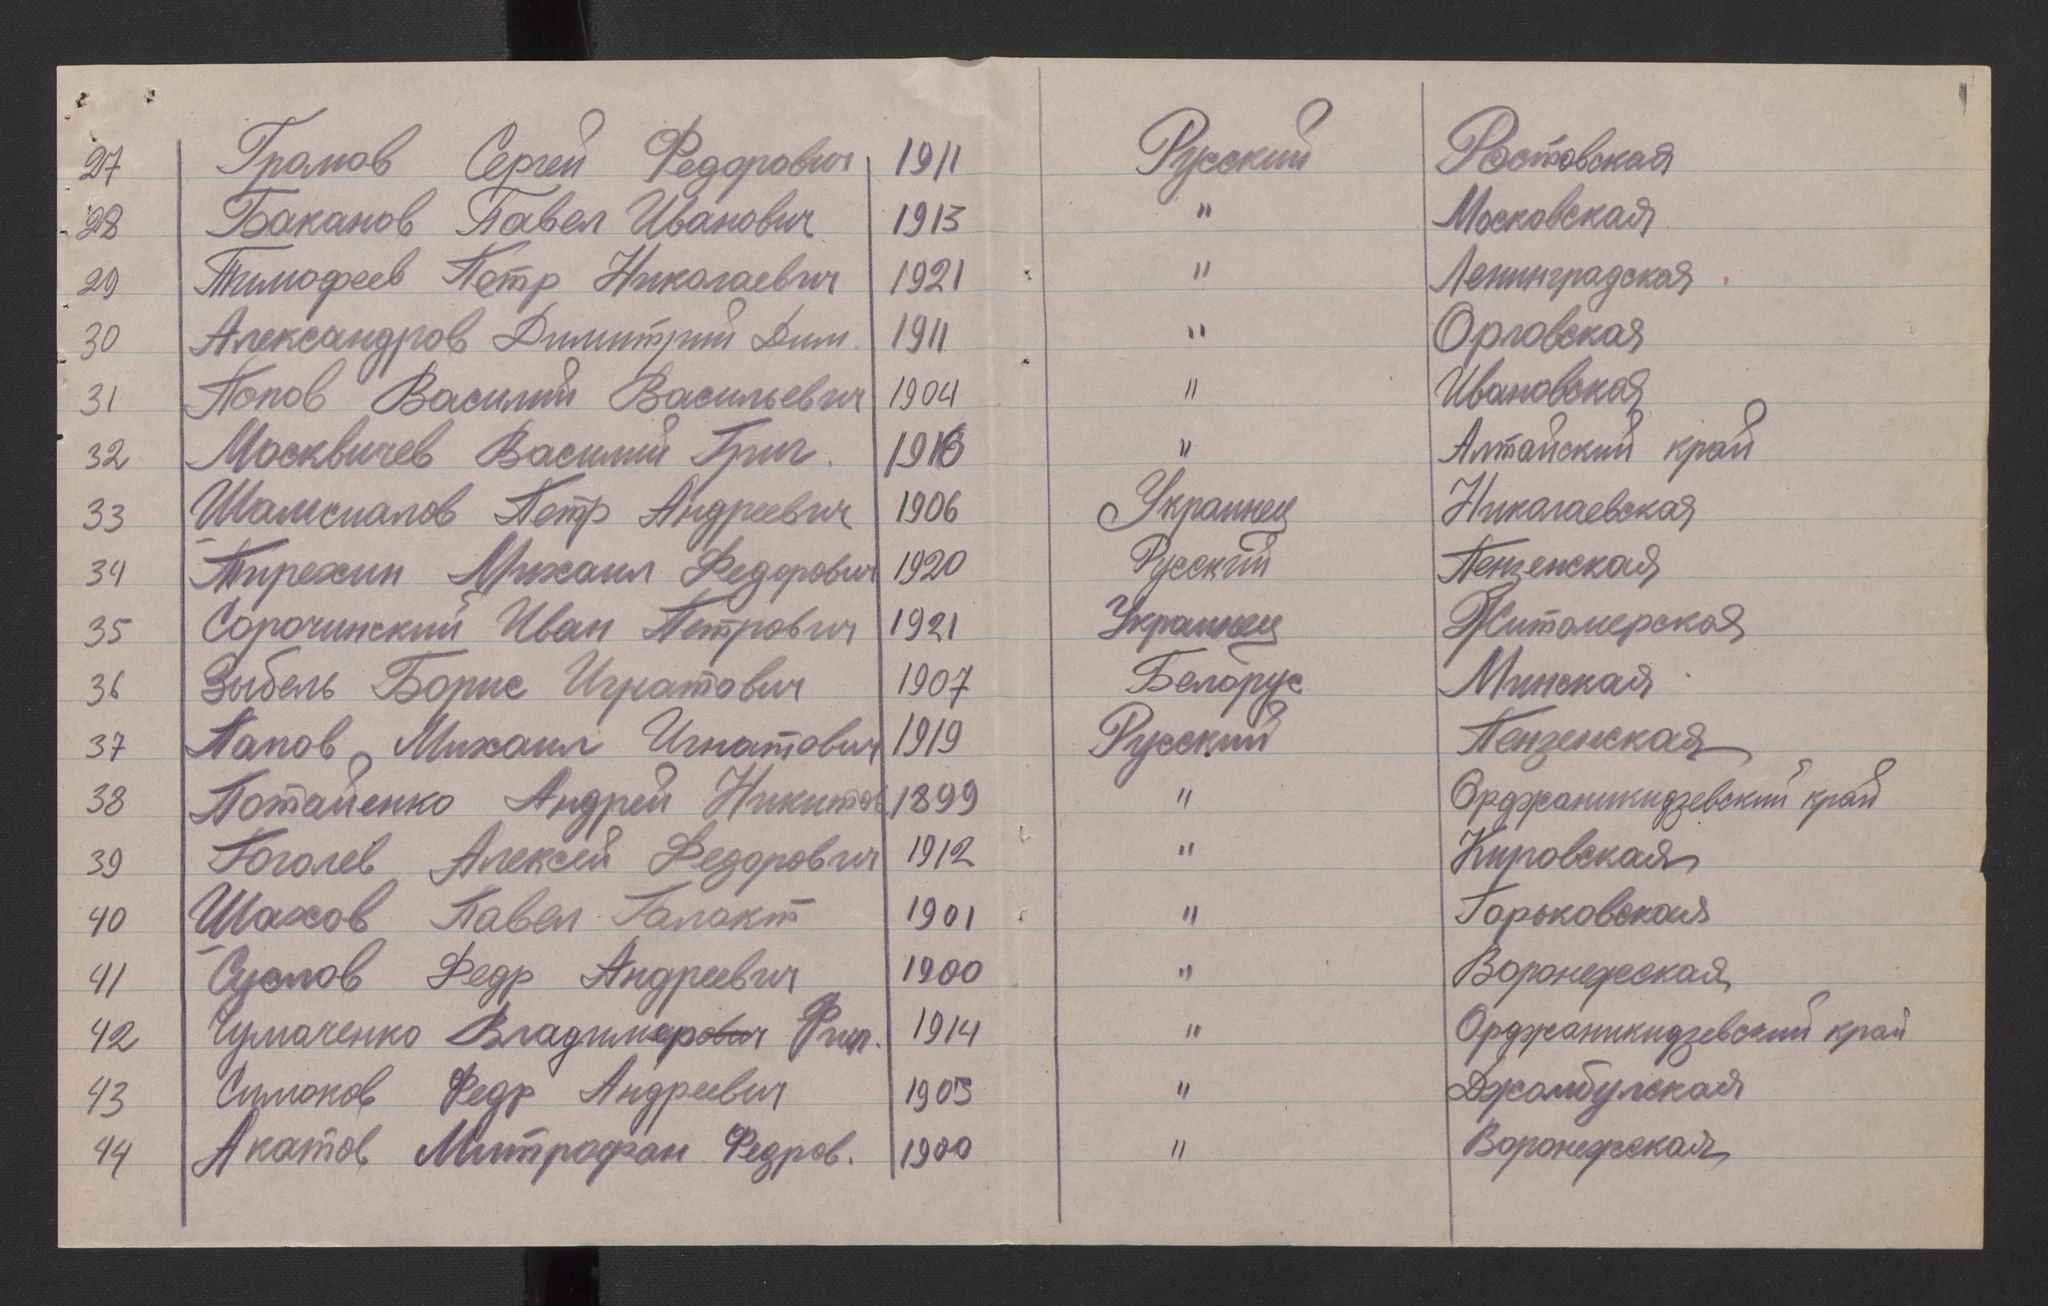 27 Громов Сергей Федорович 1911 Русский Ростовская
28 Баканов Павел Иванович 1913 " Московская
29 Тимофеев Петр Николаевич 1921 " Ленинградская
30 Александров Димитрий Дим. 1911 " Орловская
31 Попов Василий Васильевич 1904 " Ивановская
32 Москвичев Василий Григ. " Алтайский край
33 Петр Андреевич 1906 Украинец Николаевская
34 Тирехин Михаил Федорович 1920 Русский Пензенская
35 Сорочинский Иван Петрович 1921 Украинец Житомерская
36 Зыбель Борис Игнатович 1907 Белорус Минская
37 Папов Михаил Игнатович 1919 Русский Пензенская
38 Потайенко Андрей Никитов 1899 " Орджаникидзевский край
39 Гоголев Алексей Федорович 1912 " Кировская
40 Шахов Павел Галакт 1901 " Горьковская
41 Суслов Федр Андреевич 1900 " Воронежская
42 Чумаченко Владимерович Фил. 1914 " Орджаникидзевский край
43 Симаков Федр Андреевич 1903 " Джамбулская
44 Акатов Митрофан Федров. 1900 " Воронежская